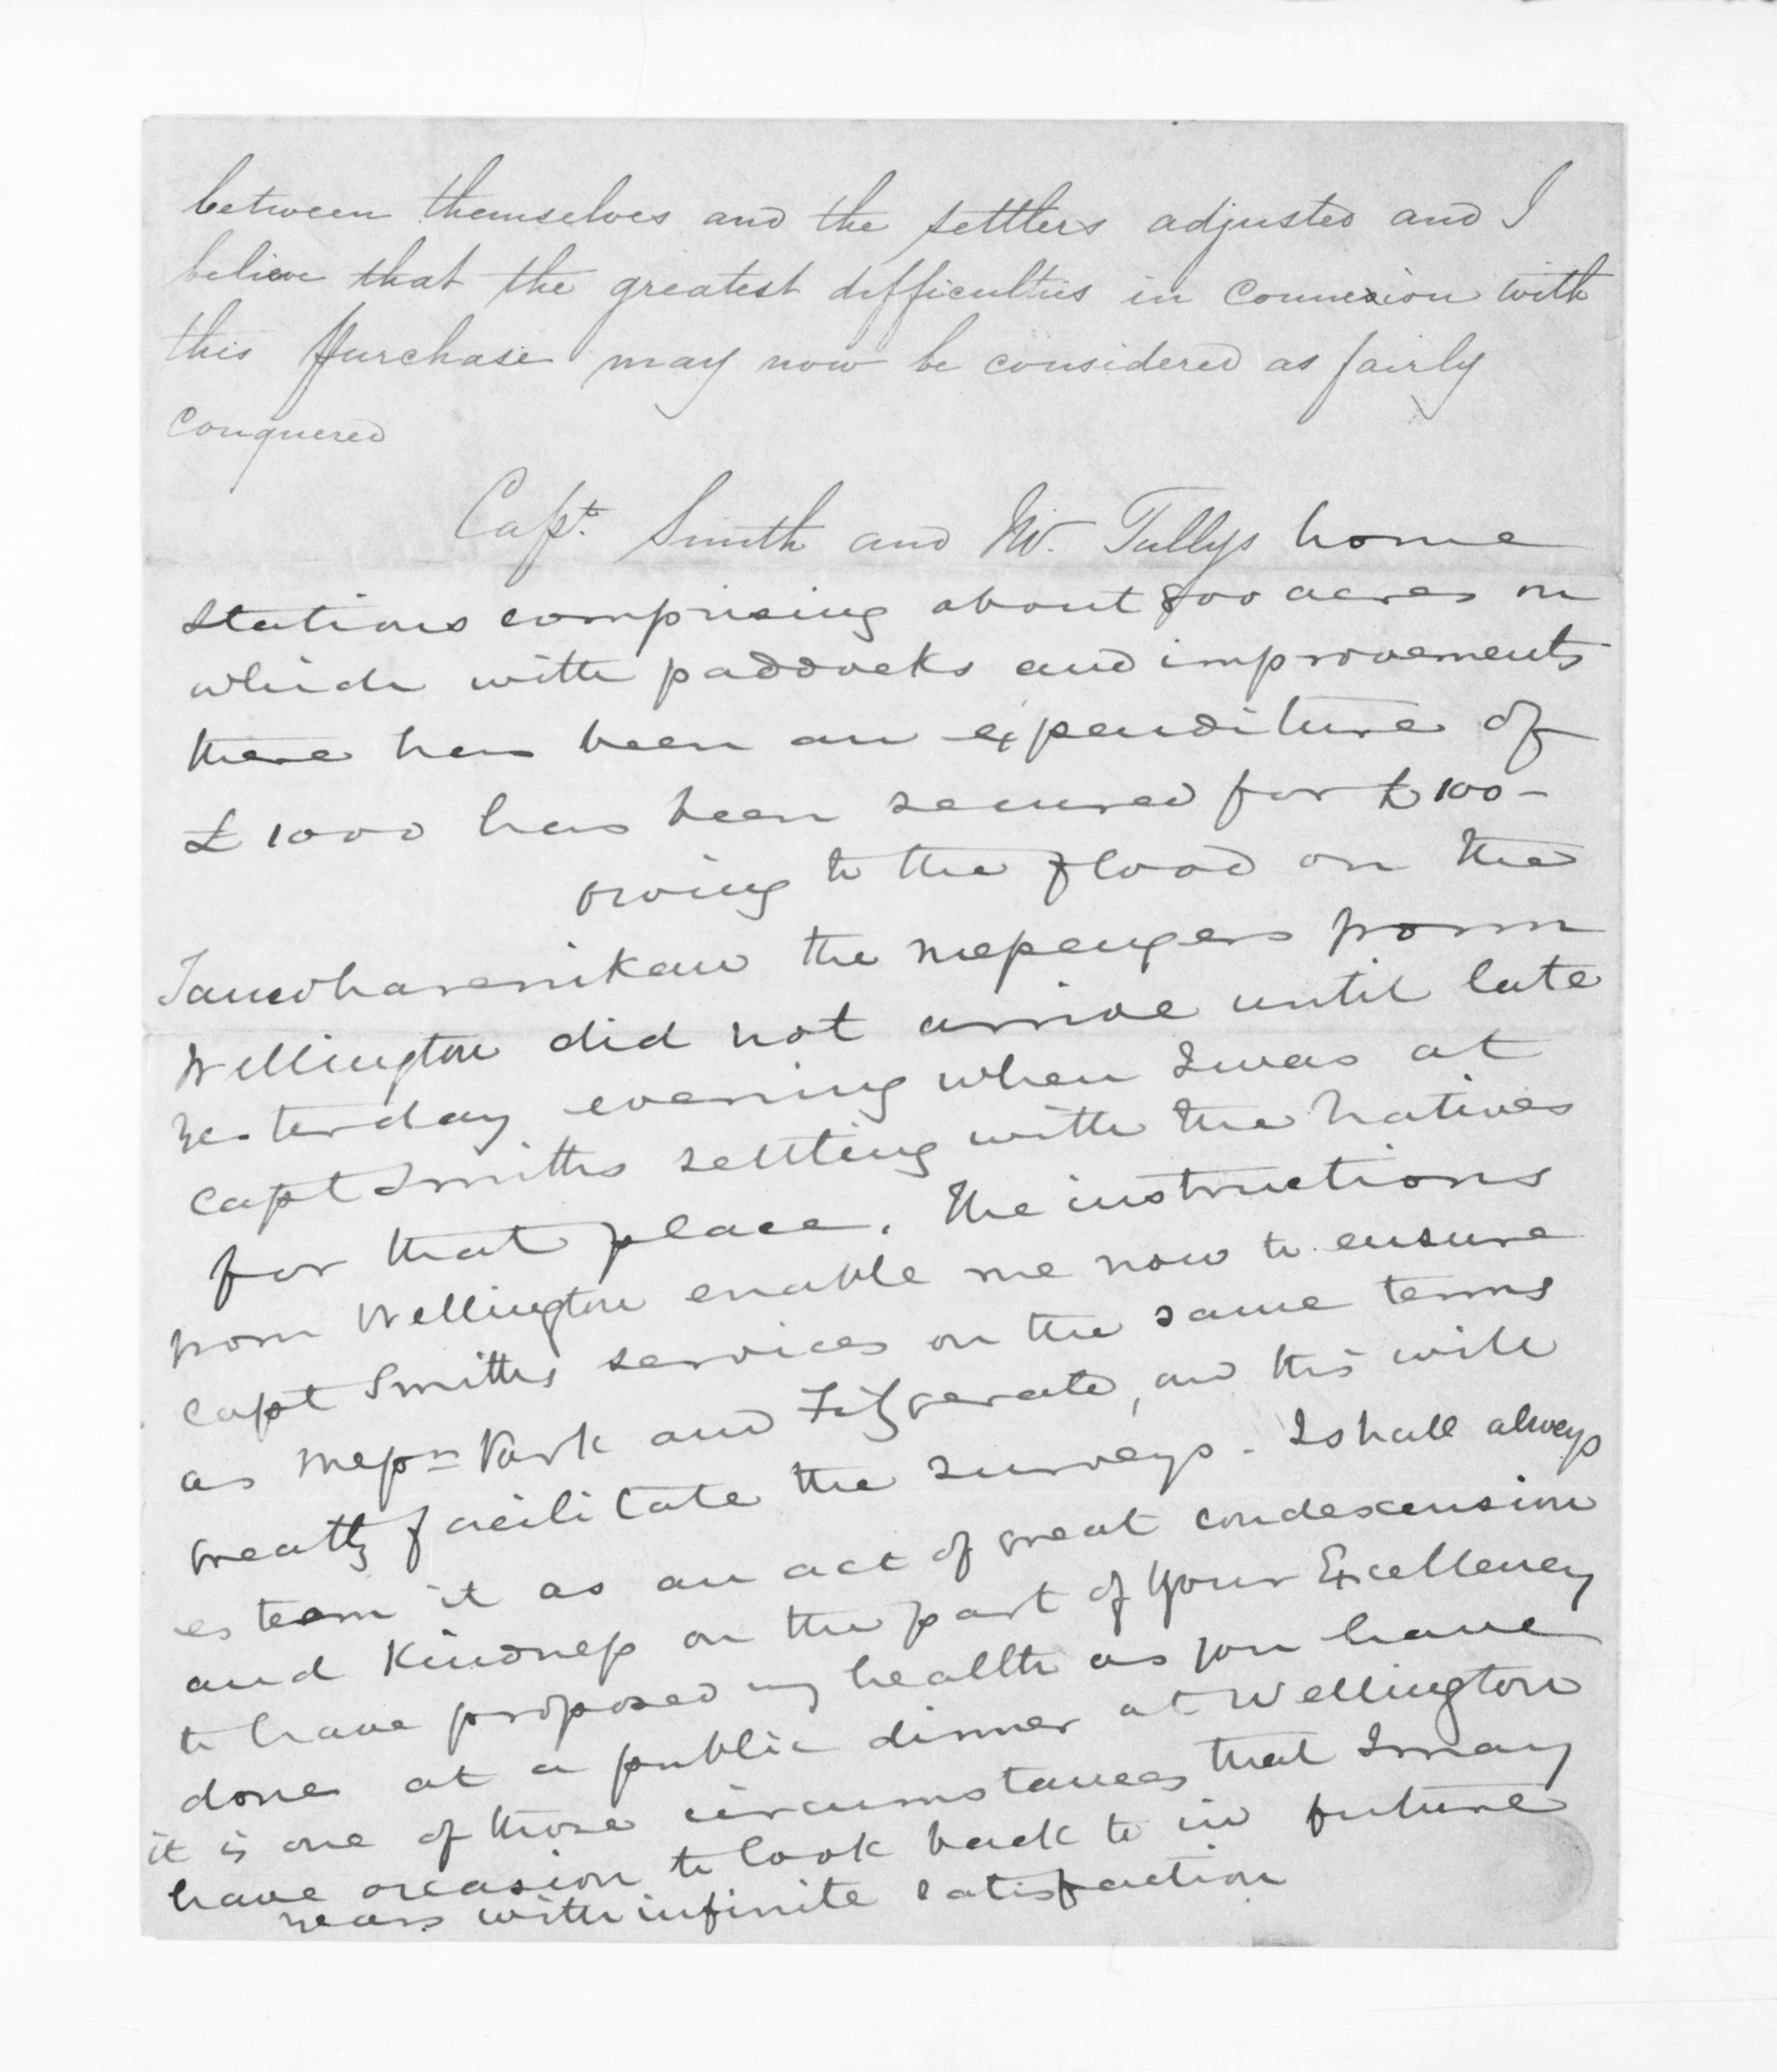 between themselves and the settlers adjusted and I
believe that the greatest difficulties in connexion with
this purchase may now be considered as fairly
conquered
Capt. Smith and Mr. Tullys home
stations comprising about 800 acres on
which with paddocks and improvements
there has been an expenditure of
£1000 has been secured for £100 -
owing to the flood on the
Tauwharenikau the messengers from
Wellington did not arrive until late
yesterday evening when I was at
Capt Smiths settling with the natives
for that place. The instructions
from Wellington enable me now to ensure
Capt Smiths services on the same terms
as Messrs Park and Fitzgerald, and this will
greatly facilitate the surveys - I shall always
esteem it as an act of great condescension
and kindness on the part of Your Excellency
to have proposed my health as you have
done at a public dinner at Wellington
it is one of those circumstances that I may
have occasion to look back to in future
years with infinite satisfaction